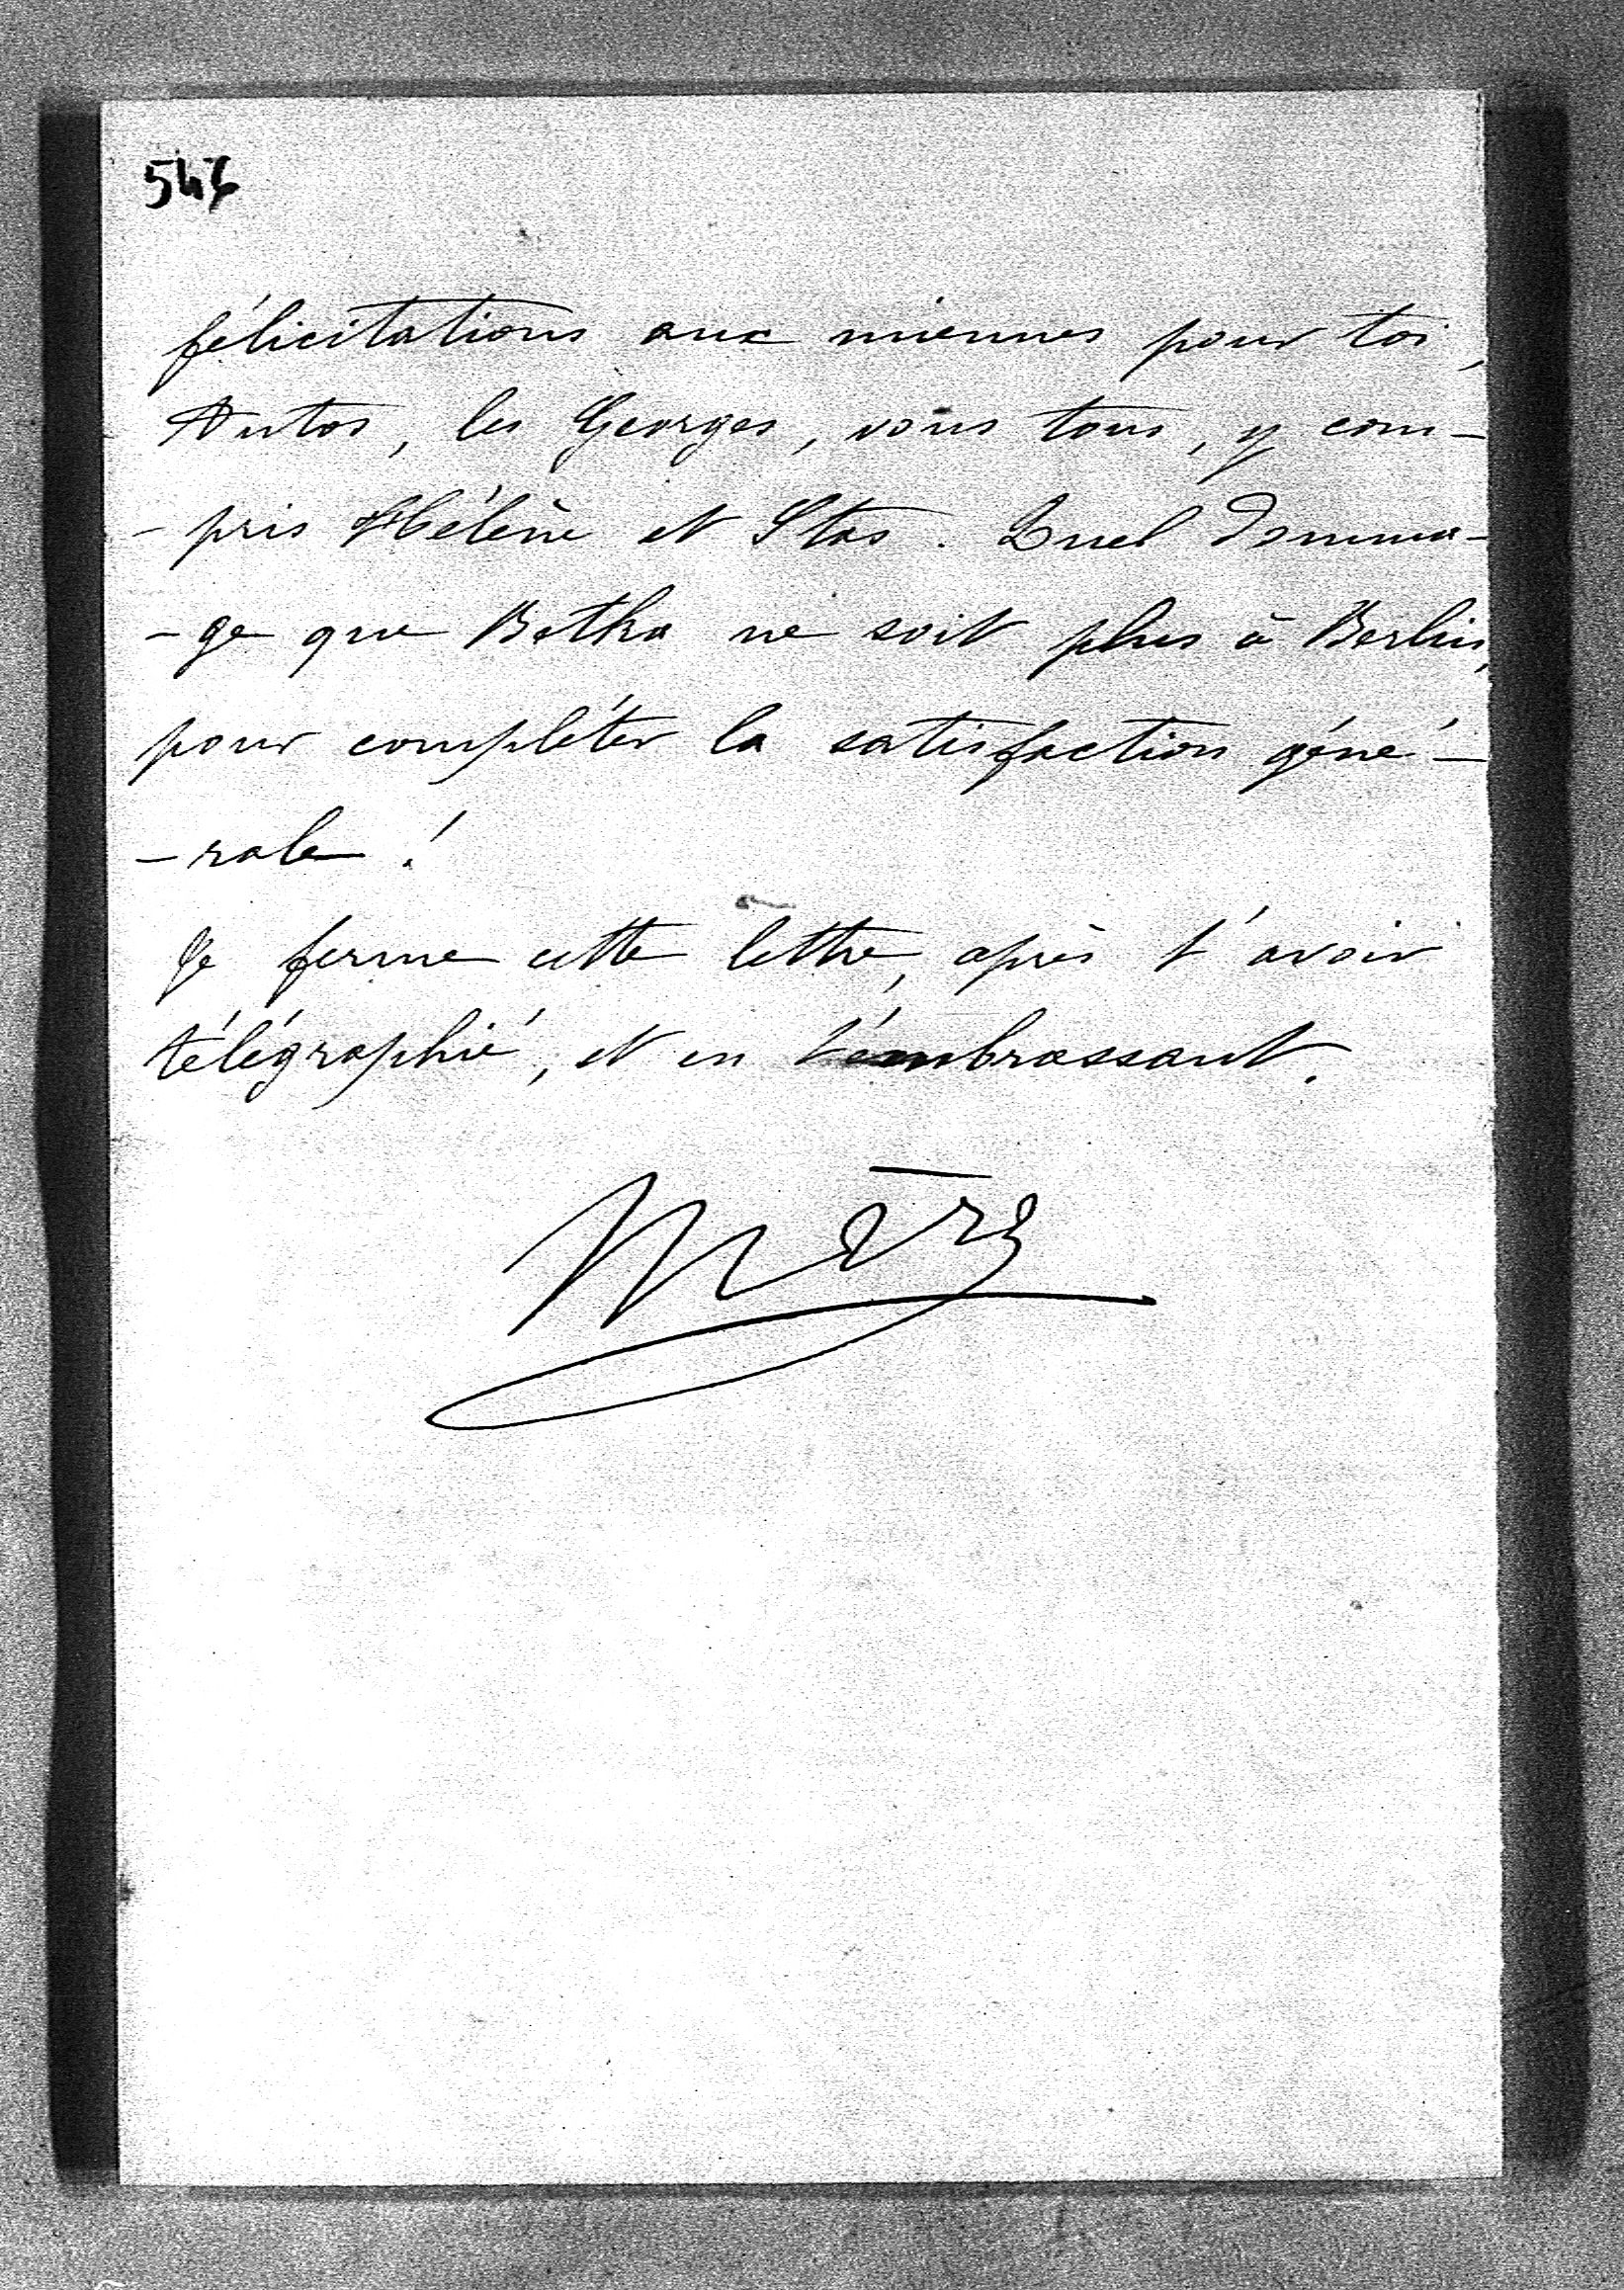 félicitations aux miennes pour toi,
Antos, les Georges, vous tous, y com-
- pris Hélène et Stas. Quel domma-
- ge que Betka ne soit plus à Berlin,
pour compléter la satisfaction géné-
- rale !
Je ferme cette lettre, après t'avoir
télégraphié, et en t'embrassant.
Mère